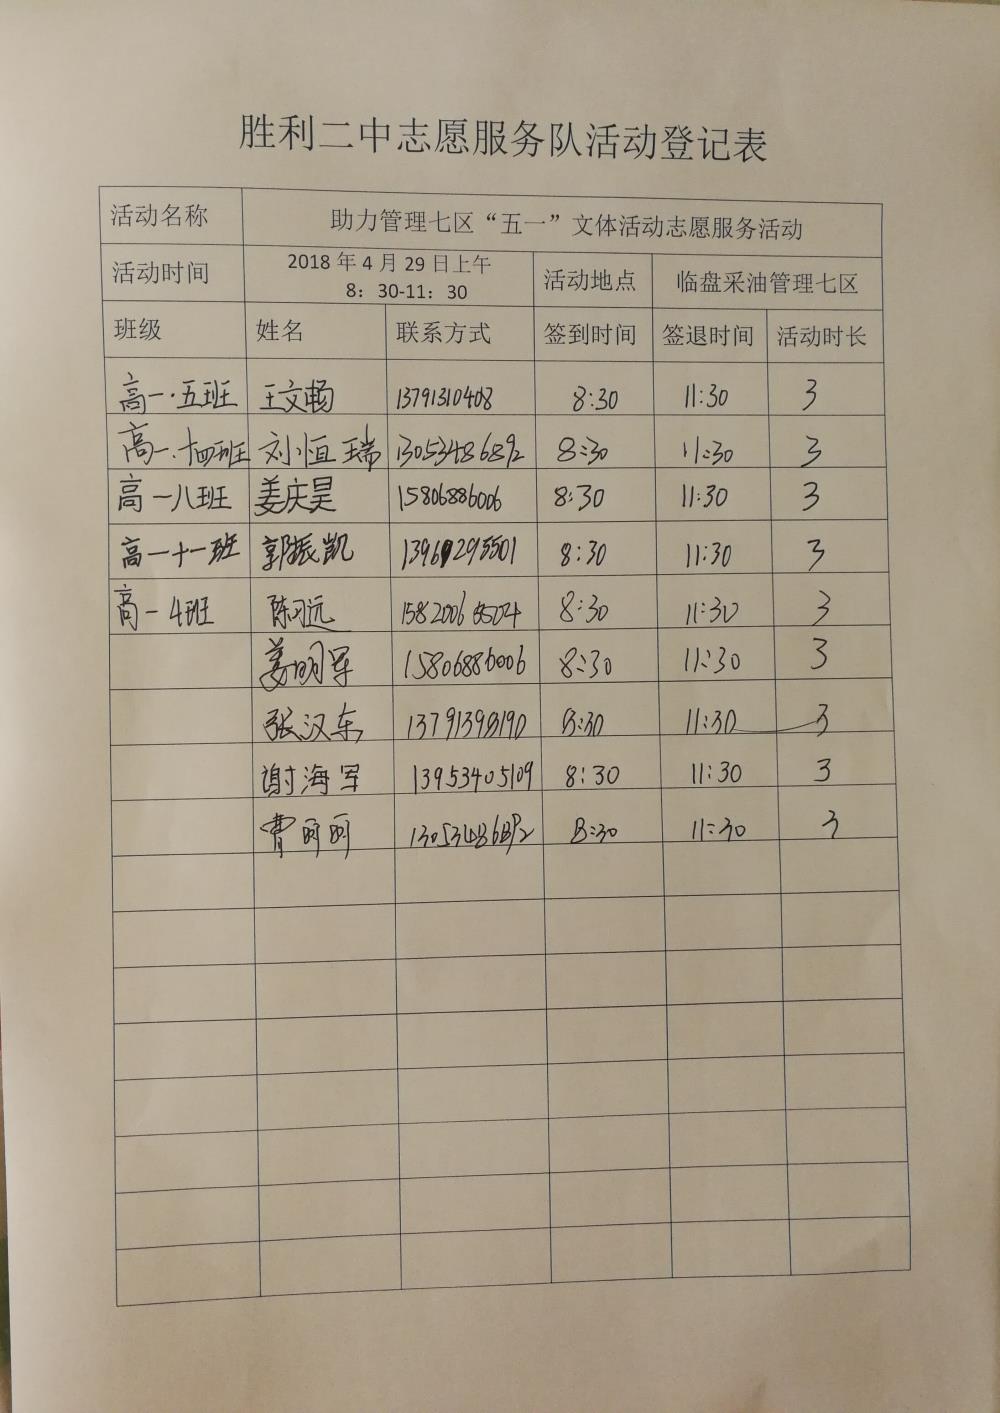 胜利二中志愿服务队活动登记表
活动名称 助力管理七区“五一”文体活动志愿服务活动
活动时间 2018年4月29日上午 8：30-11：30 活动地点 临盘采油管理七区
班级 姓名 联系方式 签到时间 签退时间 活动时长
高一·五班 王文畅 13791310408 8:30 11:30 3
高一.十四班 刘小恒瑞 13053486892 8:30 11:30 3
高一八班 姜庆昊 15806886006 8:30 11:30 3
高一十一班 郭振凯 8:30 11:30 3
高一4班 陈习远 8:30 11:30 3
姜明军 15806886006 8:30 11:30 3
张汉东 13791398190 8:30 11:30 3
谢海军 13953405109 8:30 11:30 3
曹 8:30 11:30 3